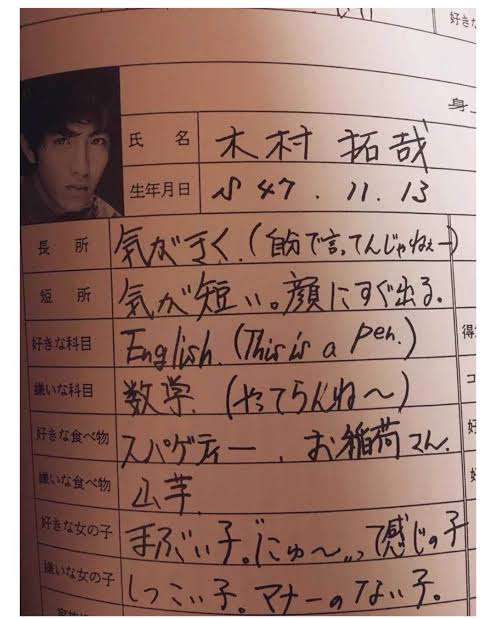 好きな
身
氏名 木村 拓哉
生年月日 S 47. 11. 13
長所 気がきく。(自分で言ってんじゃねぇー)
短所 気が短い。顔にすぐ出る。
好きな科目 English. (This is a pen.)
得
嫌いな科目 数学. (やってらんね〜)
コ
好きな食べ物 スパゲティー、お稲荷さん.
好
嫌いな食べ物 山芋.
好
好きな女の子 まぶい子。にゅ〜って感じの子
嫌いな女の子 しつこい子。マナーのない子。